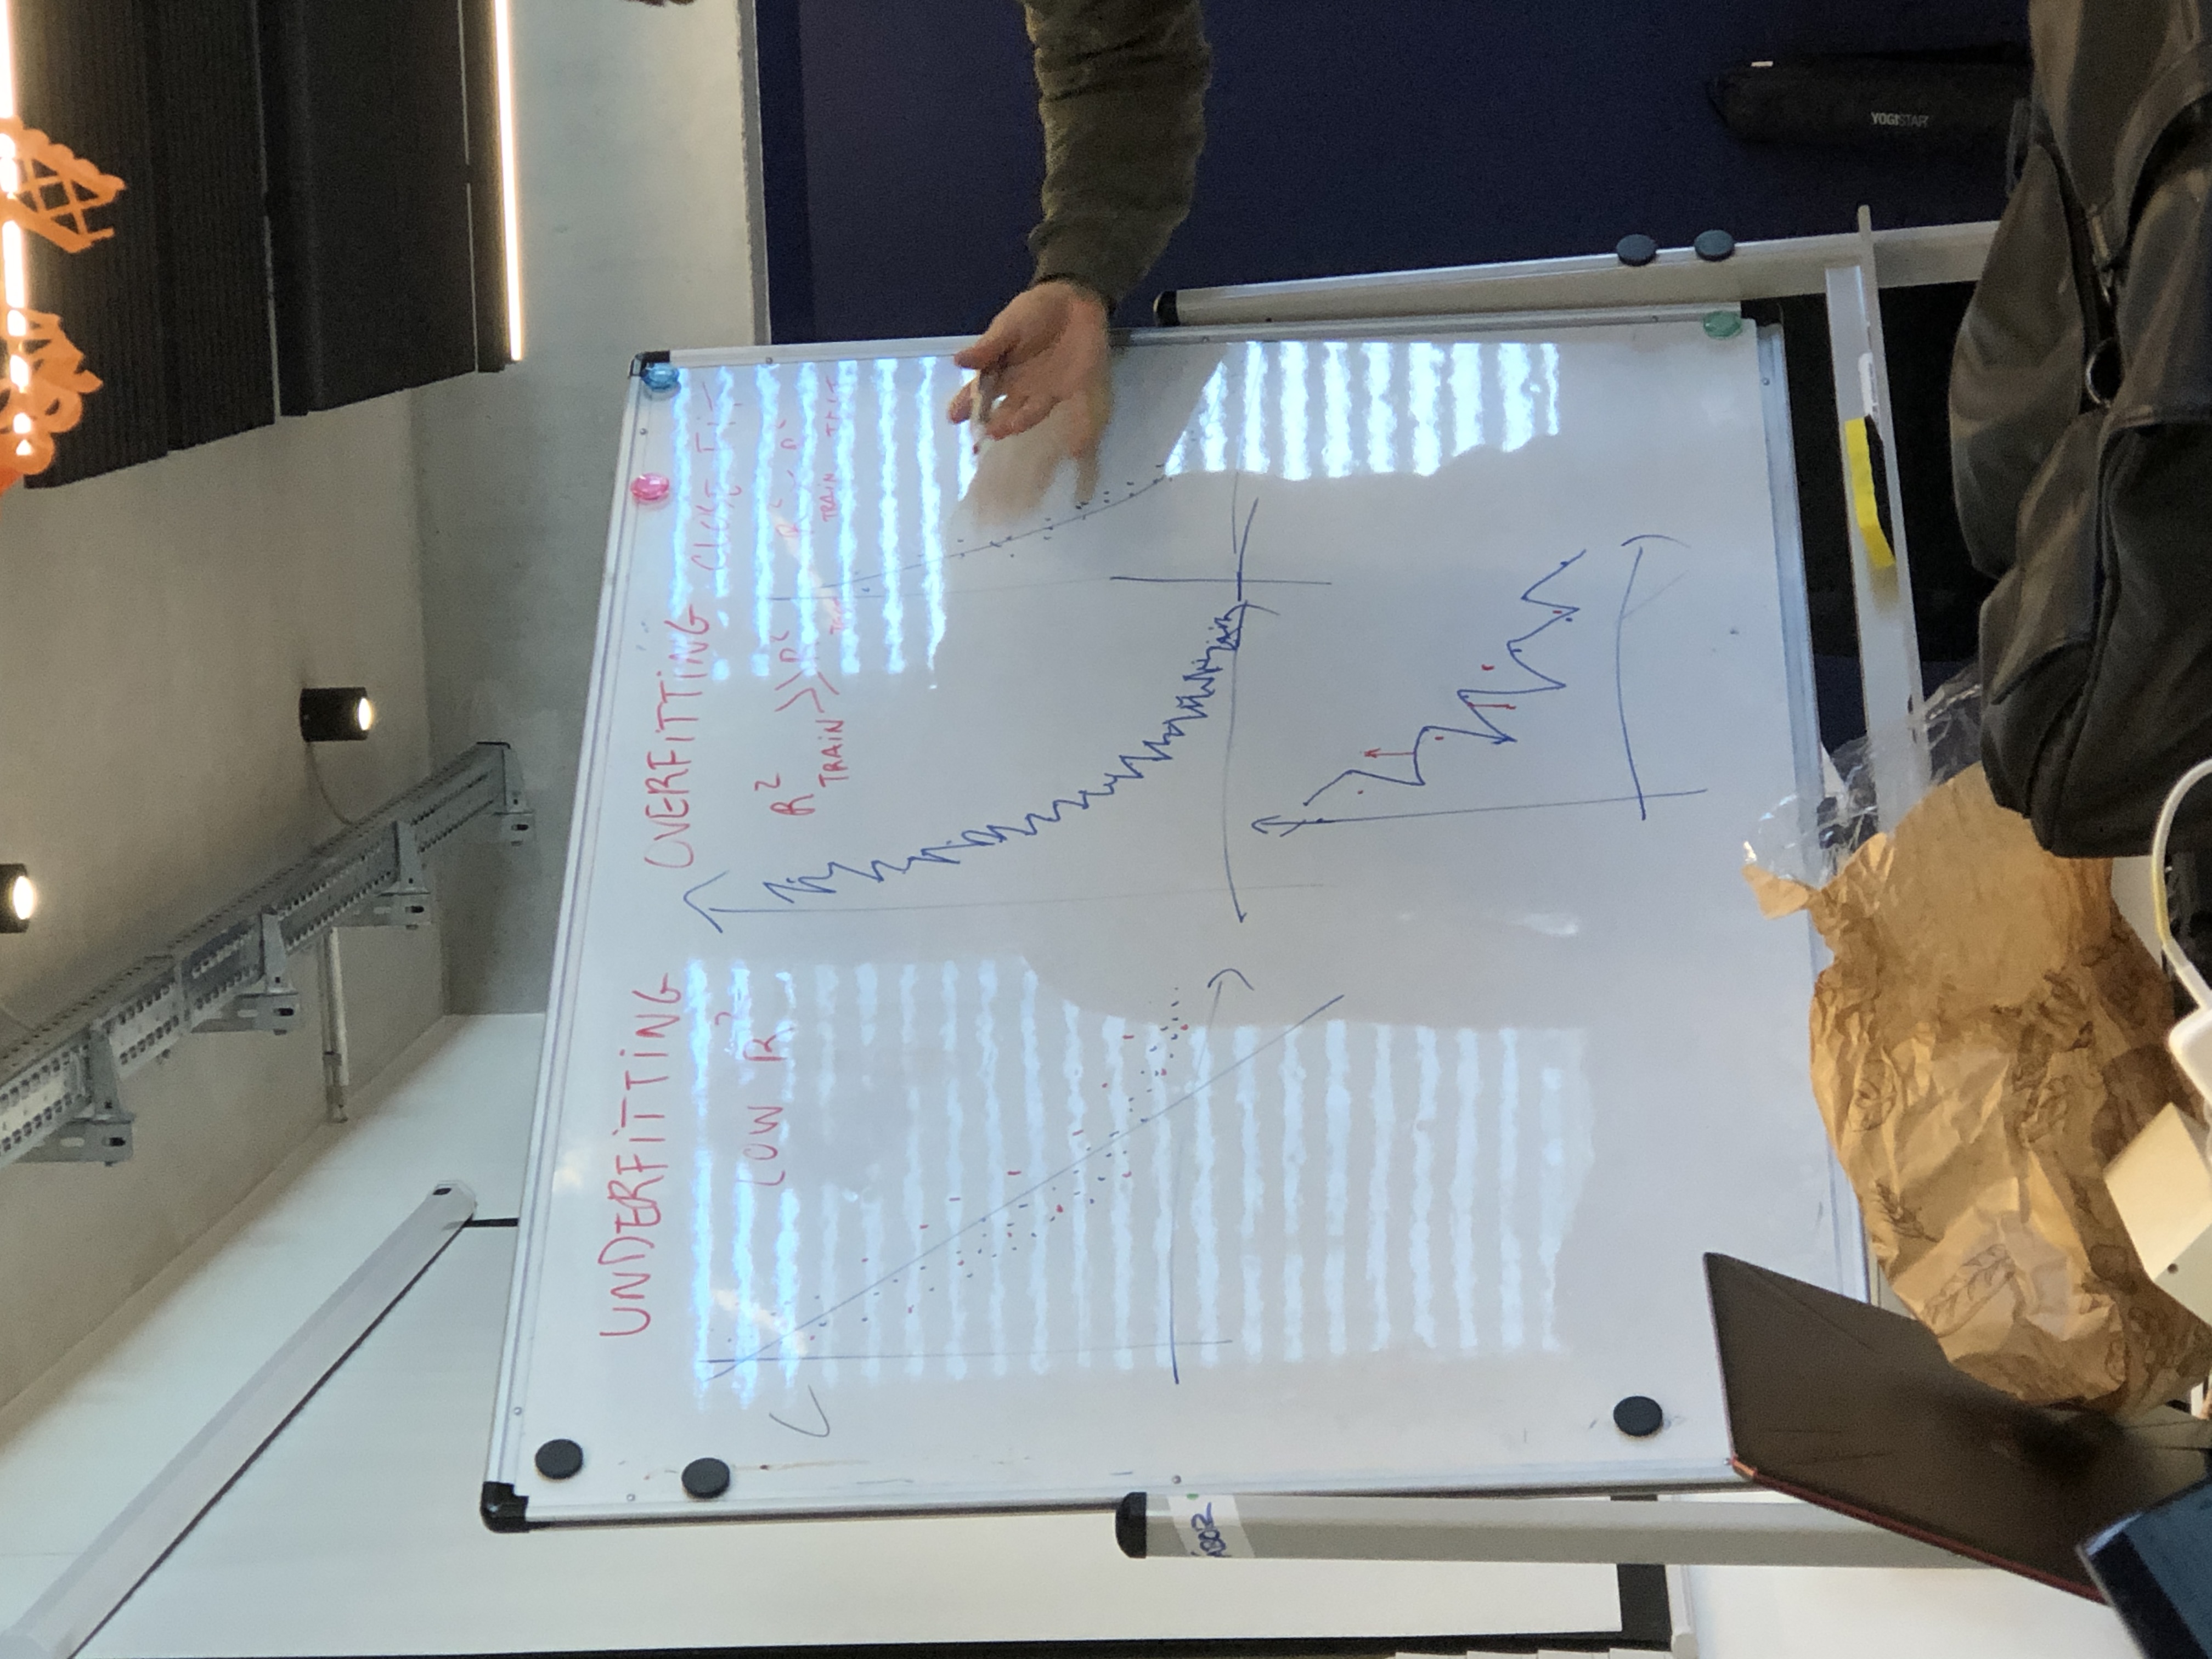 UNDERFITTING
LOW R²
OVERFITTING
R² TRAIN >> R² TEST
CLOSE FIT
R² TRAIN ~ R² TEST
YOGISTAR